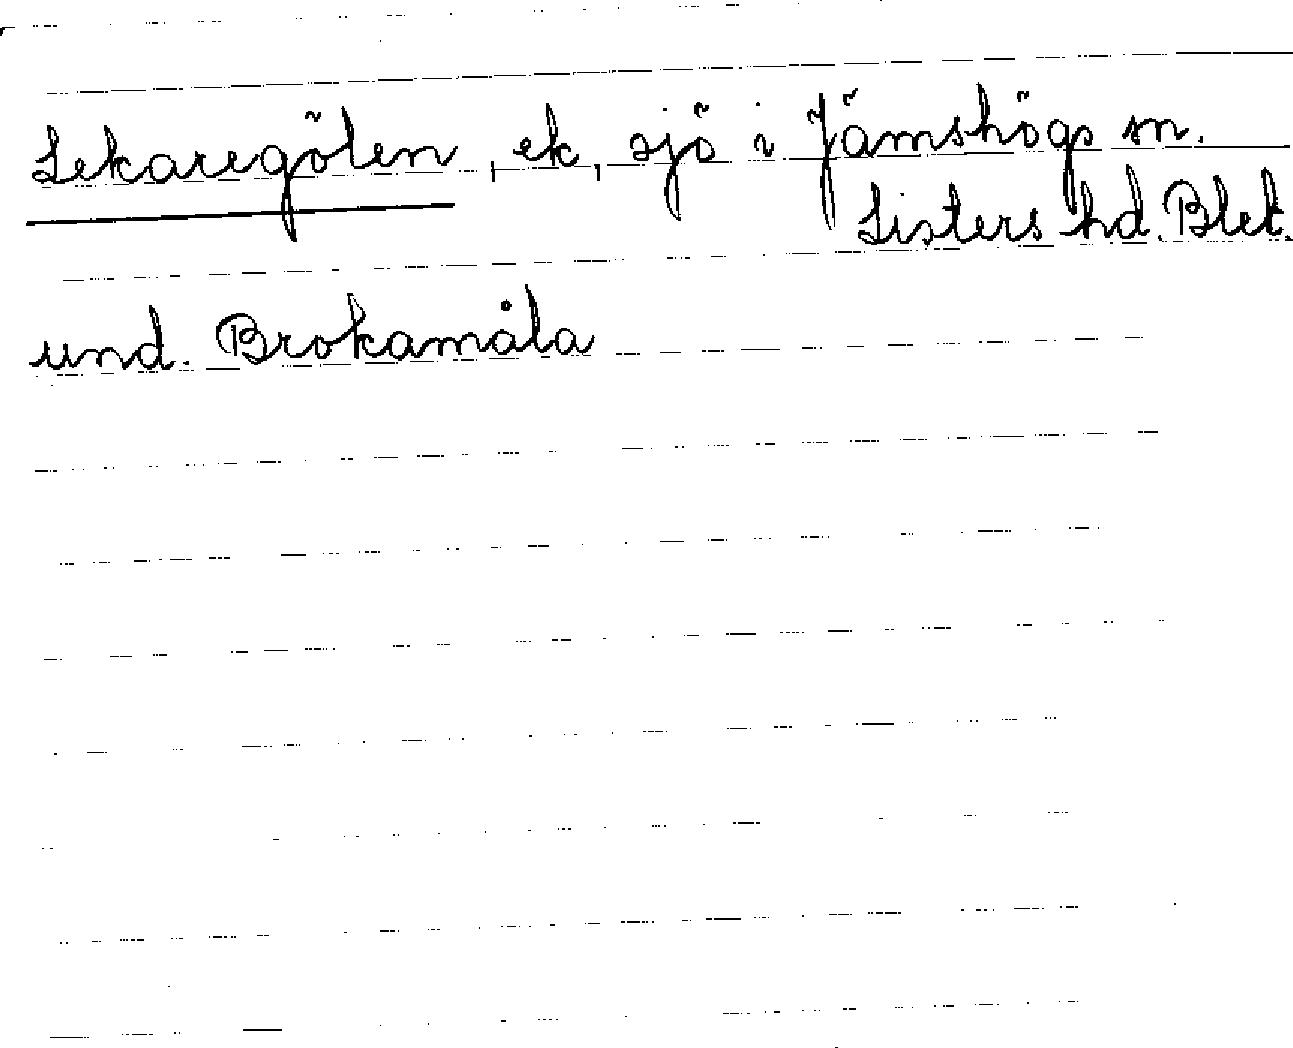 Lekaregölen, ek, sjö i Jämshögs sn.
Listers hd. Blek.
und. Brokamåla